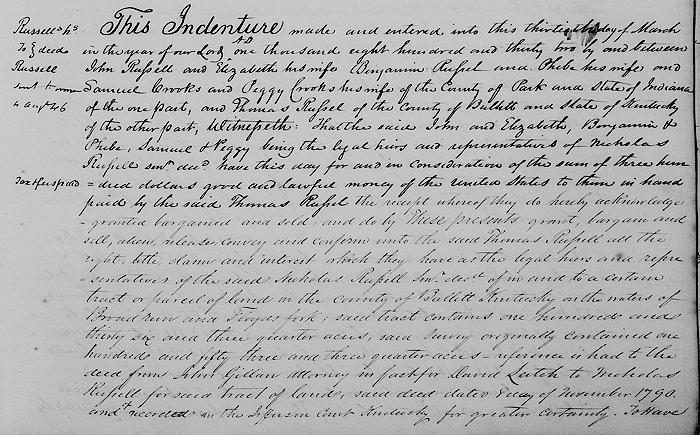 Russells hs.
To } deed
Russell
sent
4 Aug 46
Tax & fees paid
This Indenture made and entered into this thirtieth day of March
in the year of our Lord AD one thousand eight hundred and thirty two by and between
John Russell and Elizabeth his wife Benjamin Russel and Phebe his wife and
Samuel Crooks and Peggy Crooks his wife of the County of Park and State of Indiana
of the one part, and Thomas Russel of the County of Bullitt and State of Kentucky
of the other part, Witnesseth: That the said John and Elizabeth, Benjamin &
Phebe, Samuel & Peggy being the legal heirs and representatives of Nicholas
Russell senr. decd. have this day for and in consideration of the sum of three hun
=dred dollars good and lawful money of the United States to them in hand
paid by the said Thomas Russel the receipt whereof they do hereby acknowledge
-granted bargained and sold, and do by These presents grant, bargain and
sell, alien, release, convey and confirm unto the said Thomas Russell all the
right, title, claim and interest which they have as the legal heirs and repre
-sentatives of the said Nicholas Russell Snr. decd. of in and to a certain
tract or parcel of land in the county of Bullitt Kentucky on the waters of
Broad run and Floyds fork; said tract contains one hundreds and
thirty six and three quarter acres, said survey originally contained one
hundreds and fifty three and three quarter acres - reference is had to the
deed from Gillan attorney in fact for David Leitch to Nicholas
Russell for said tract of land, said deed dated 8 day of November 1790.
and recorded in the Jefferson Court Kentucky for greater certainty. To Have